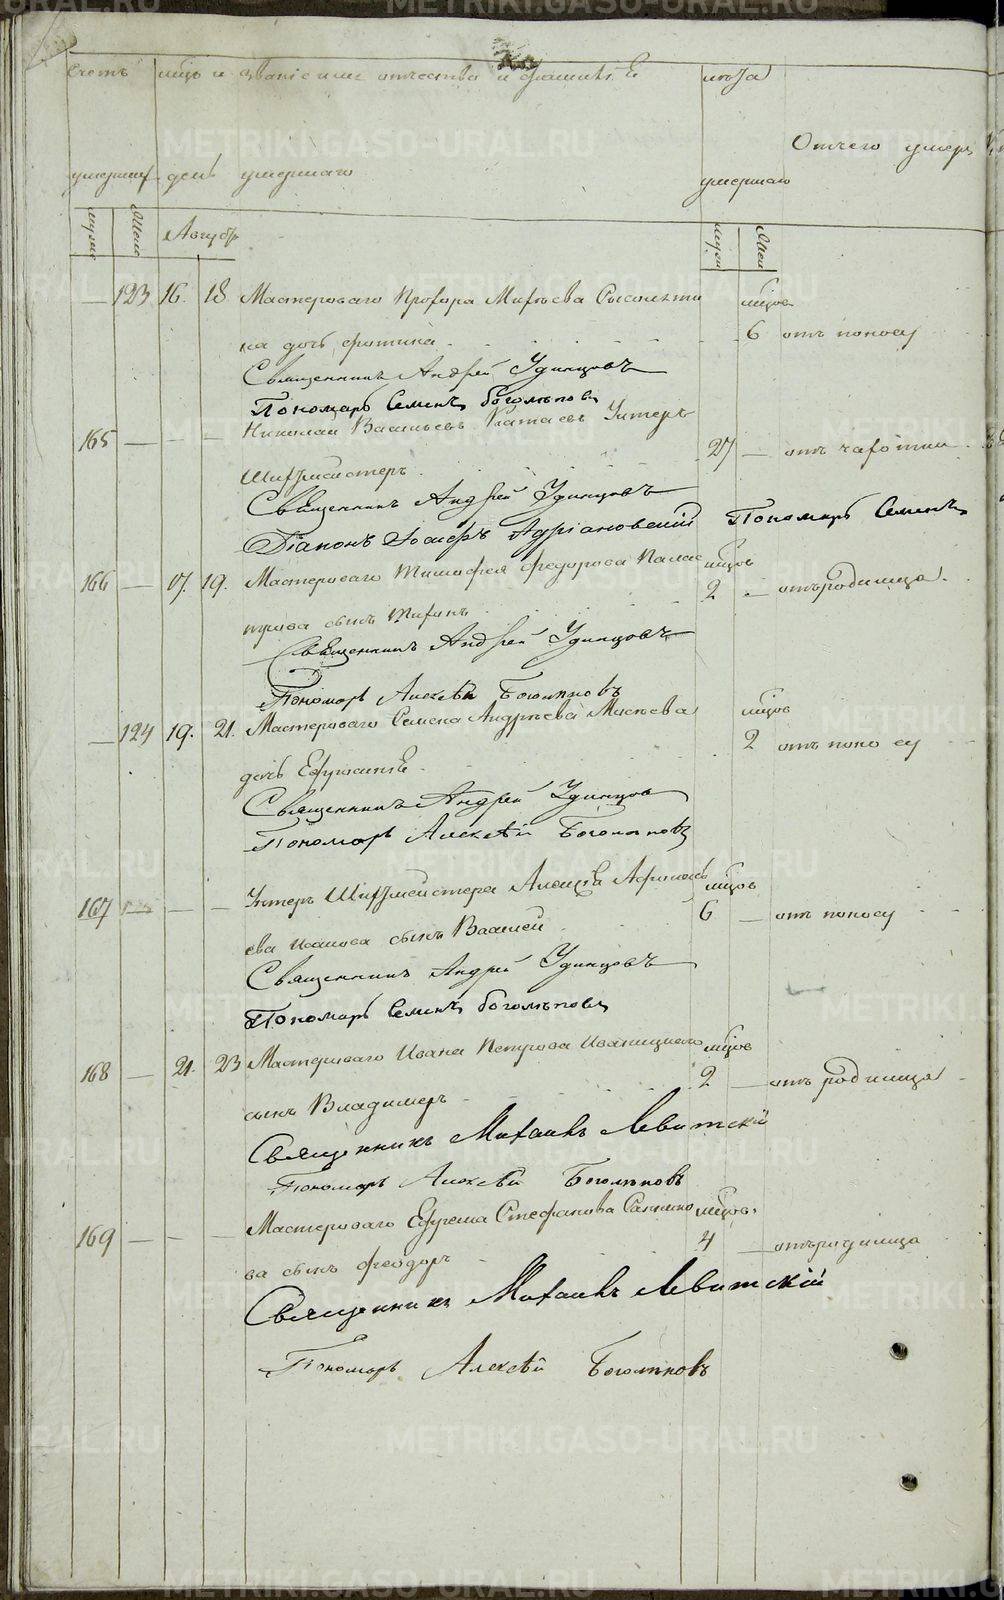 METRIKI.GASO-URAL.RU
счетъ лицъ и званіе имя отчество и фамилія лѣта
Отчего умеръ
умершаго день умершаго умершаго
мужес женс Августъ мужес женс
— 123 16. 18 Мастероваго Прохора Мирѣева мцов
ка дочь Фотина 6 отъ поносу
Священникъ Андрей Удинцовъ
Пономарь Семенъ Боголѣповъ
165 — — — Николай Васильевъ Китаевъ Унтеръ
Шихтмейстеръ 27 — отъ чахотки
Священникъ Андрей Удинцовъ
Діаконъ Іосифъ Адріановскій Пономарь Семенъ
166 — 17. 19. Мастероваго Тимофея Федорова мцов
сынъ Тихонъ 2 — отъ родимца
Священникъ Андрей Удинцовъ
Пономарь Алексѣй Боголѣповъ
— 124 19. 21. Мастероваго Семена Андрѣева Мосѣева мцов
дочь Ефросинія 2 отъ поносу
Священникъ Андрей Удинцов
Пономарь Алексѣй Боголѣповъ
167 — — Унтеръ Шихтмейстера Алексѣя мцов
ева Исакова сынъ Василей 6 — отъ поносу
Священникъ Андрей Удинцовъ
Пономарь Семенъ Боголѣповъ
168 — 21. 23 Мастероваго Ивана Петрова Иваницкаго мцов
сынъ Владимеръ 2 — отъ родимца
Священникъ Михаилъ Левитскій
Пономарь Алексѣй Боголѣповъ
169 — — — Мастероваго Ефрема Стефанова мцов
ва сынъ Феодоръ 4 — отъ родимца
Священникъ Михаилъ Левитскій
Пономарь Алексѣй Боголѣповъ